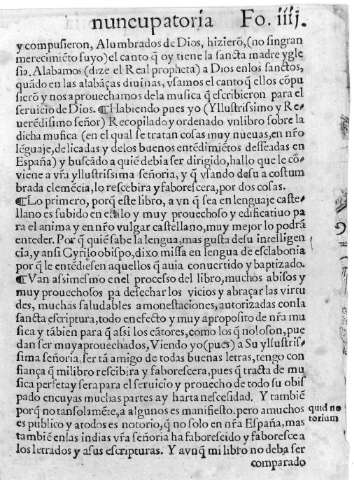 nuncupatoria Fo. iiij.
y compusieron, Alumbrados de Dios, hizierō, (no sin gran
merecimiēto suyo) el canto q̄ oy tiene la sancta madre ygle
sia. Alabamos (dize el Real propheta) a Dios enlos sanctos,
quādo en las alabāças diuinas, vsamos el canto q̄ ellos cōpu
sierō y nos aprouechamos dela musica q̄ escribieron para el
seruicio de Dios. ¶Habiendo pues yo (Yllustrissimo y Re-
uerēdissimo señor) Recopilado y ordenado vn libro sobre la
dicha musica (en el qual se tratan cosas muy nueuas, en nr̄o
lēguaje, delicadas y delos buenos entēdimiētos desseadas en
España) y buscādo a quiē debia ser dirigido, hallo que le cō-
viene a vr̄a yllustrissima señoria, y q̄ vsando de su acostum
brada clemēcia, lo rescebira y faborescera, por dos cosas.
¶Lo primero, porq̄ este libro, a vn q̄ sea en lenguaje caste-
llano es subido en estilo y muy prouechoso y edificatiuo pa
ra el anima y en nr̄o vulgar castellano, muy mejor lo podrā
entēder. Por q̄ quiē sabe la lengua, mas gusta de su intelligen
cia, y ansi Cyrilo obispo, dixo missa en lengua de esclabonia
por q̄ le entēdiesen aquellos q̄ auia conuertido y baptizado.
¶Van assimesmo en el processo del libro, muchos abisos y
muy prouechosos pa desechar los vicios y abraçar las virtu
des, muchas saludables amonestaciones, autorizadas con la
sancta escriptura, todo en efecto y muy aproposito de nr̄a mu
sica y tābien para q̄ assi los cātores, como los q̄ no lo son, pue
dan ser muy aprouechados, Viendo yo (pues) a Su yllustris-
sima señoria, ser tā amigo de todas buenas letras, tengo con
fiança q̄ mi libro rescibira y faborescera, pues q̄ tracta de mu
sica perfeta y sera para el seruicio y prouecho de todo su obis
pado en cuyas muchas partes ay harta necessidad. Y tambiē
porq̄ no tan solamēte, a algunos es manifiesto, pero a muchos
quid no
es publico y a todos es notorio, q̄ no solo en nr̄a España, mas
torium
tambiē en las indias vr̄a señoria ha faborescido y faboresce a
los letrados y a sus escripturas. Y avn q̄ mi libro no deba ser
comparado